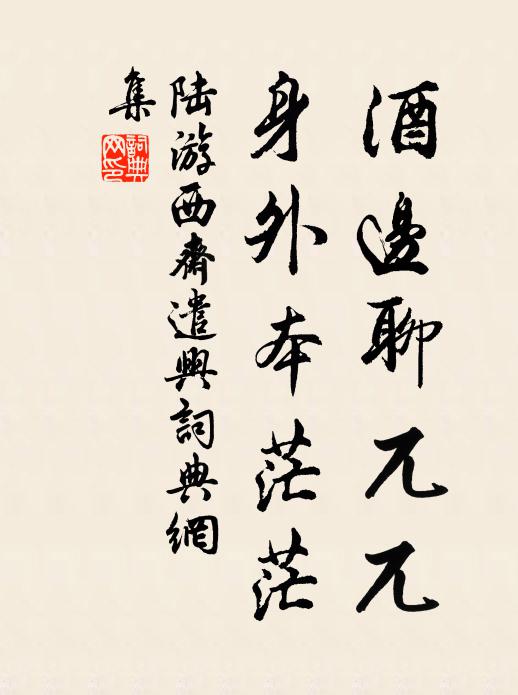 酒邊聊兀兀
身外本茫茫
陸游西齋遣興詞典網
集
詞典網印